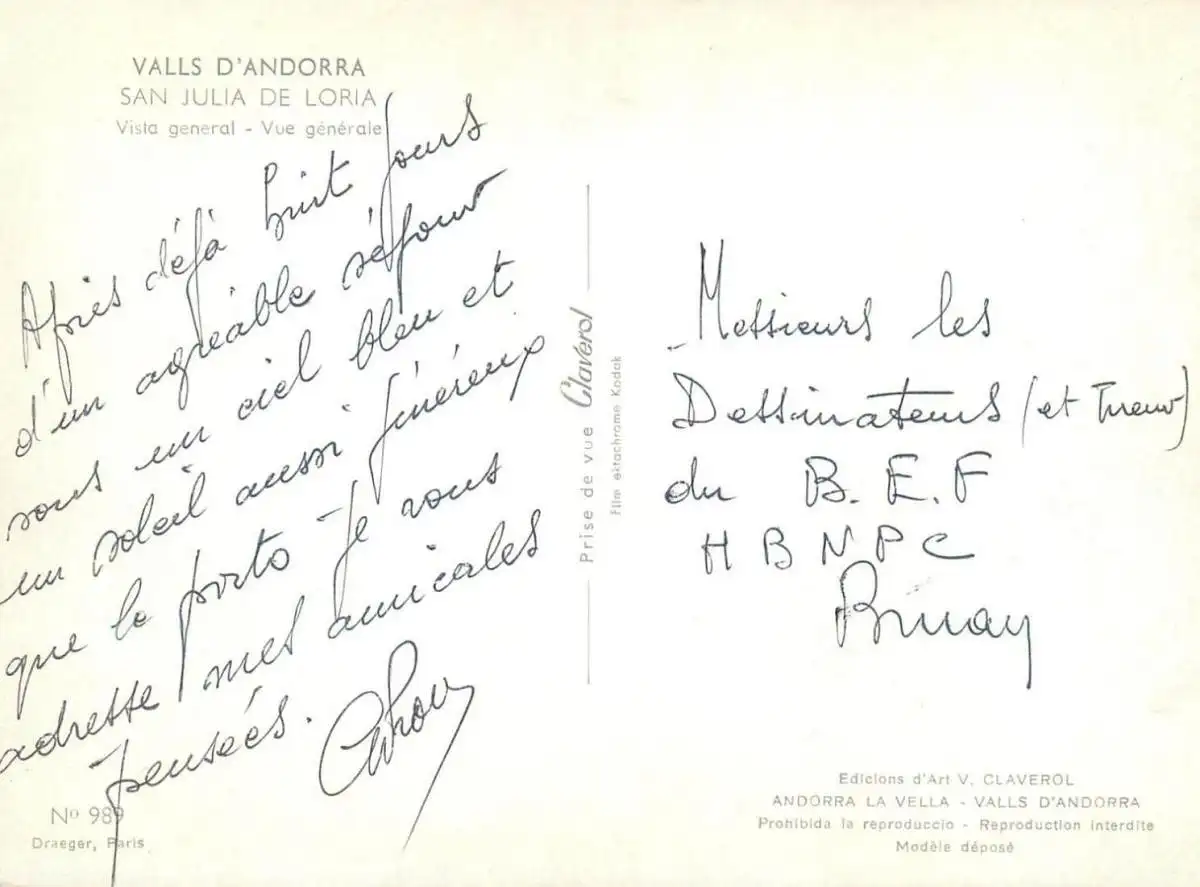 VALLS D'ANDORRA
SAN JULIA DE LORIA
Vista general - Vue générale
Après déjà huit jours
d'un agréable séjour
sous un ciel bleu et
un soleil aussi généreux
que le porto je vous
adresse mes amicales
pensées.
Nº 989
Draeger, Paris
Prise de vue Claverol
Film ektachrome Kodak
Messieurs les
Dessinateurs (et Tireur)
du B.E.F
HBNPC
Bruay
Edicions d'Art V. CLAVEROL
ANDORRA LA VELLA - VALLS D'ANDORRA
Prohibida la reproduccio - Reproduction interdite
Modèle déposé